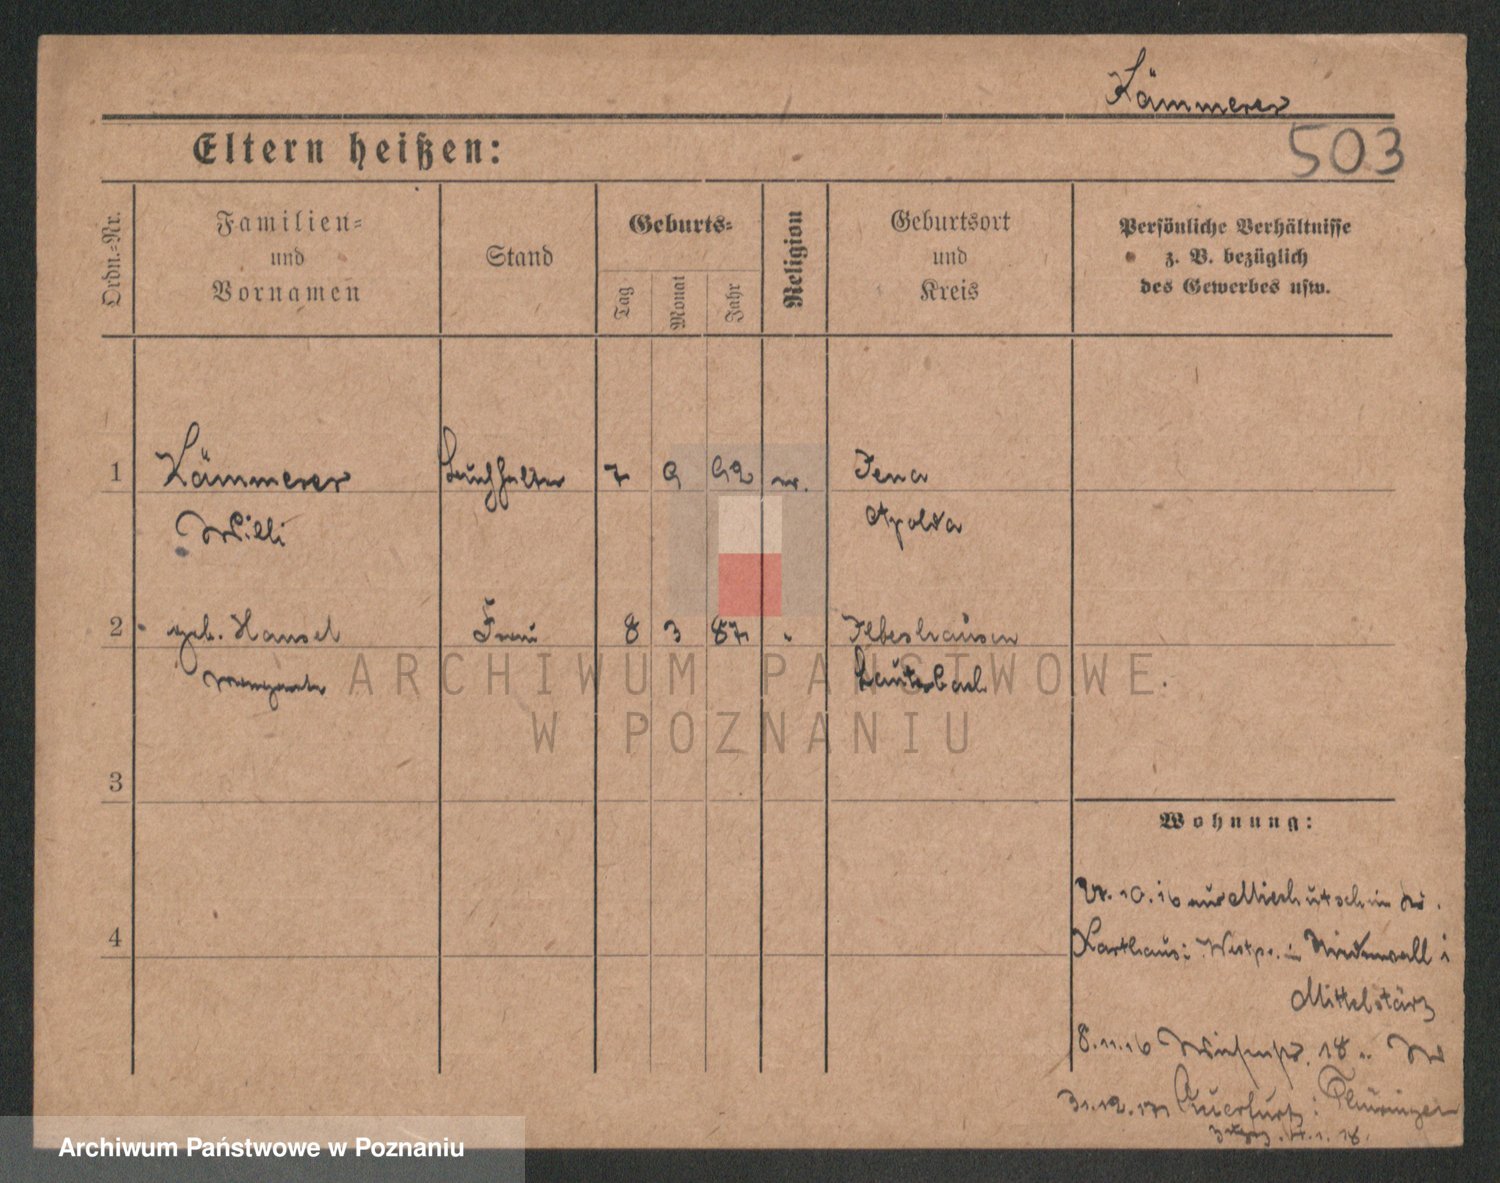 Kämmerer
503
Eltern heißen:
Ordn.-Nr.
Familien-
und
Vornamen
Stand
Geburts-
Tag
Monat
Jahr
Religion
Geburtsort
und
Kreis
Persönliche Verhältnisse
z. B. bezüglich
des Gewerbes usw.
1 Kämmerer Buchhalter 7 9 92 ev. Jena
Willi Apolda
2 geb. Hansel Frau 8 3 87 " Ilbeshausen
Margarete Lauterbach
3
4
Wohnung:
10.16 aus
Karthaus Westpr. in i
8.11.16 18
31.12.17 Querfurt Thüringen
4.1.18.
ARCHIWUM PAŃSTWOWE
W POZNANIU
Archiwum Państwowe w Poznaniu